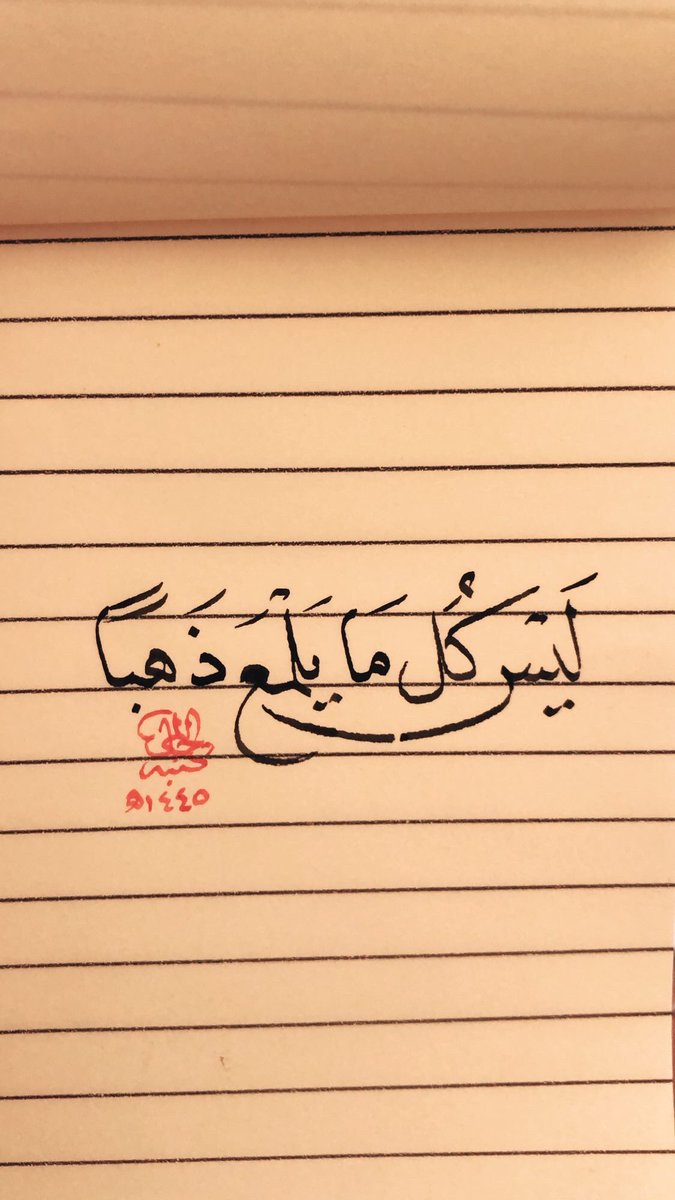 لَيْسَ كُلُّ مَا يَلْمَعُ ذَهَبًا
كتبه
١٤٤٥هـ